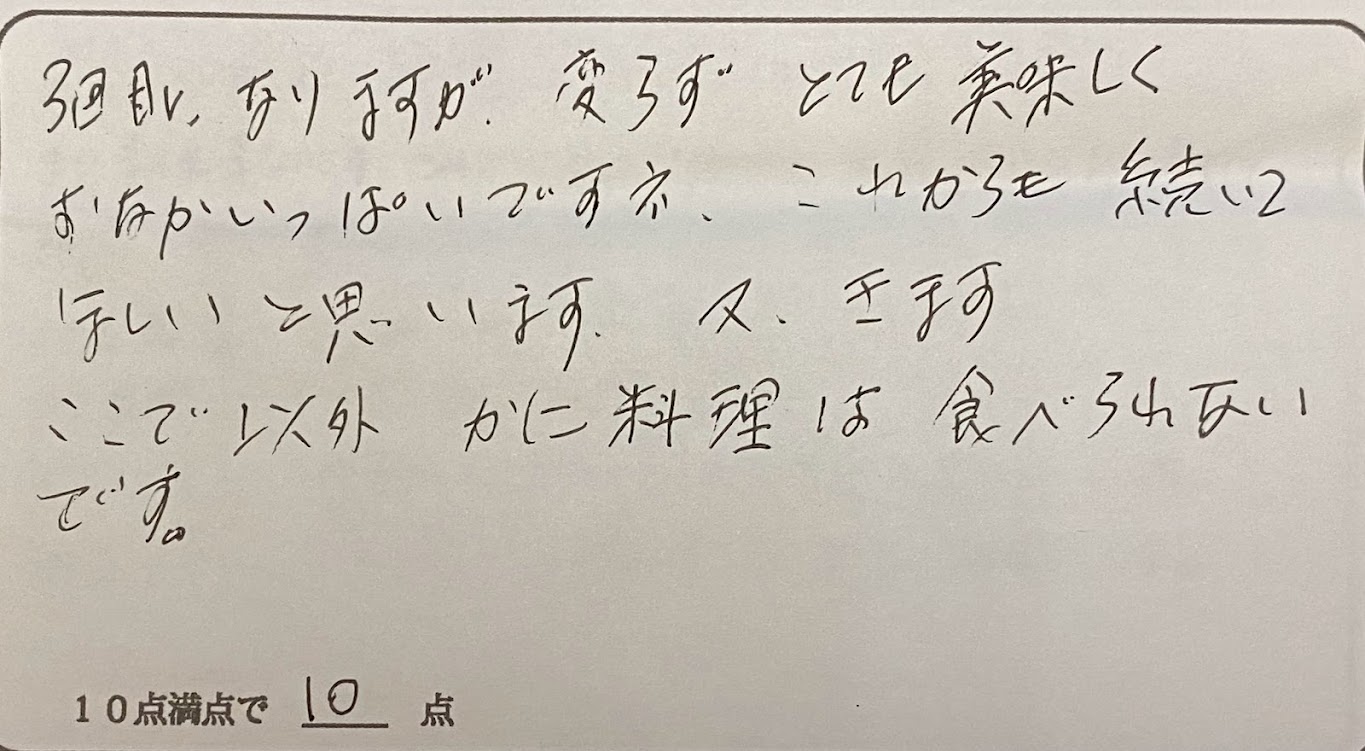 3回目になりますが、変らずとても美味しく
おなかいっぱいですネ、これからも続いて
ほしいと思います。又、きます
ここで以外かに料理は食べられない
です。
10点満点で 10 点